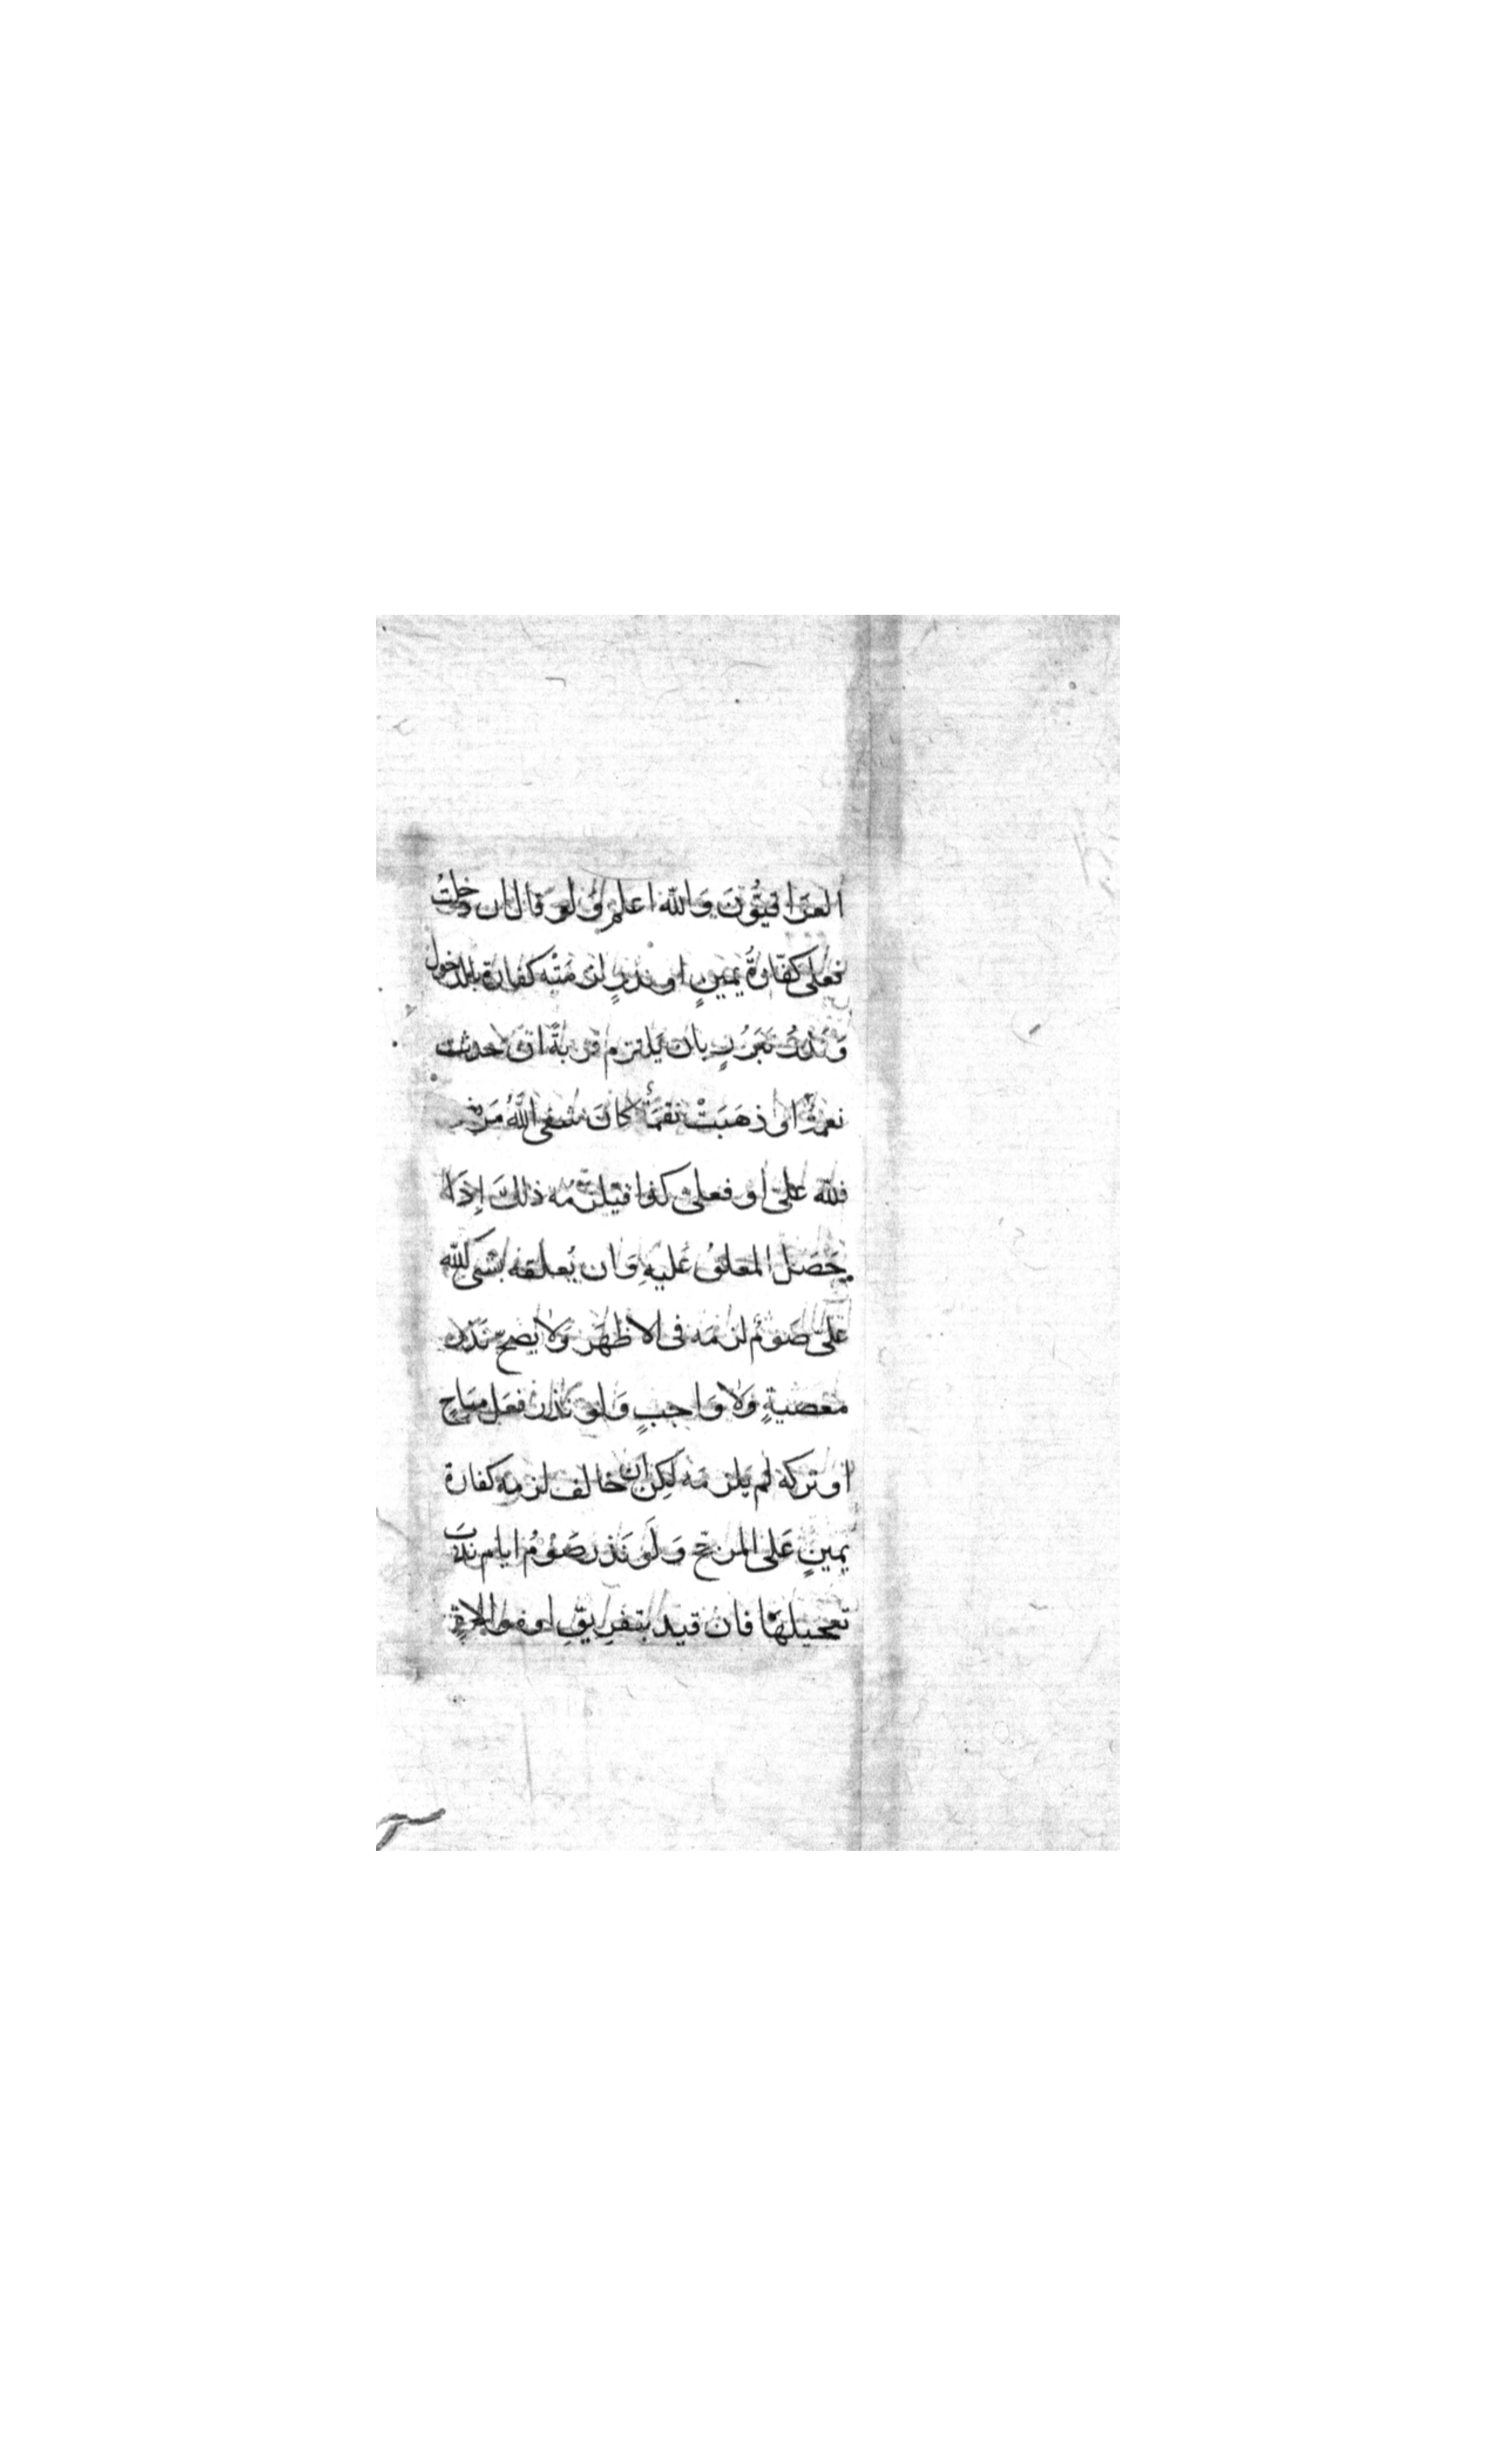 العَرَاقيُّونَ وَالله اعلم وَلو قال ان دخلتُ
فعلى كفّارةُ يمينٍ او نذرٍ لزمَتْه كفارة بالدخول
وَنَذرُ تبَرُرٍ بان يَلتزم قربةً ان حدثت
نعمةٌ او ذهَبَتْ نقمَةٌ كانَ شفى اللهُ مَريضى
فلله على او فعلى كذا فيلزمه ذلكَ إِذَا
حَصَل المعلقُ عَليهِ وَان لم يُعلقه بشى كلله
علىّ صَومٌ لزمَه فى الاظهَر وَلا يصح نَذر
معصيةٍ وَلا وَاجبٍ وَلو نذر فعَل مبَاحٍ
او تركه لم يلزمَه لكن ان خالف لزمه كفارة
يمينٍ عَلى المرجح وَلَو نَذر صَوْمُ ايام ندبَ
تعجيلهَا فان قيد بتفريقٍ او موالاةٍ